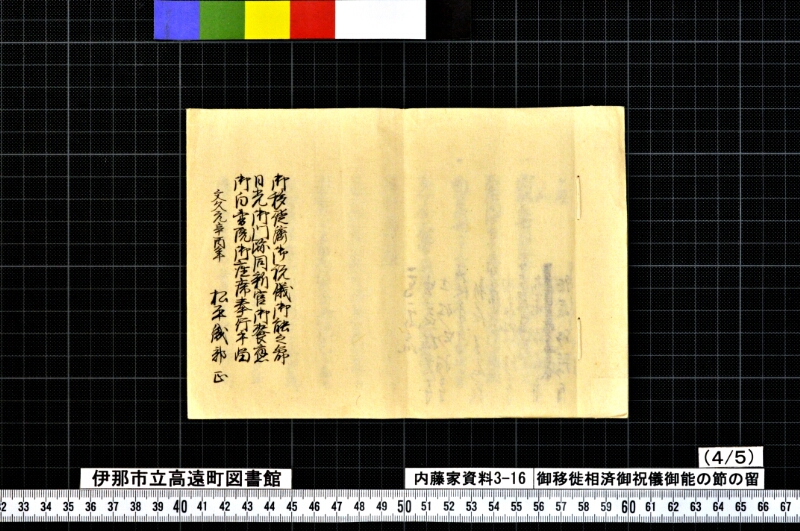 御移徙済御祝儀御能之節
日光御門跡同新宮御饗応
御白書院御座席奉行手留
文久元辛酉年
松平
(4/5)
伊那市立高遠町図書館
内藤家資料3-16
御移徙相済御祝儀御能の節の留
32 33 34 35 36 37 38 39 40 41 42 43 44 45 46 47 48 49 50 51 52 53 54 55 56 57 58 59 60 61 62 63 64 65 66 67